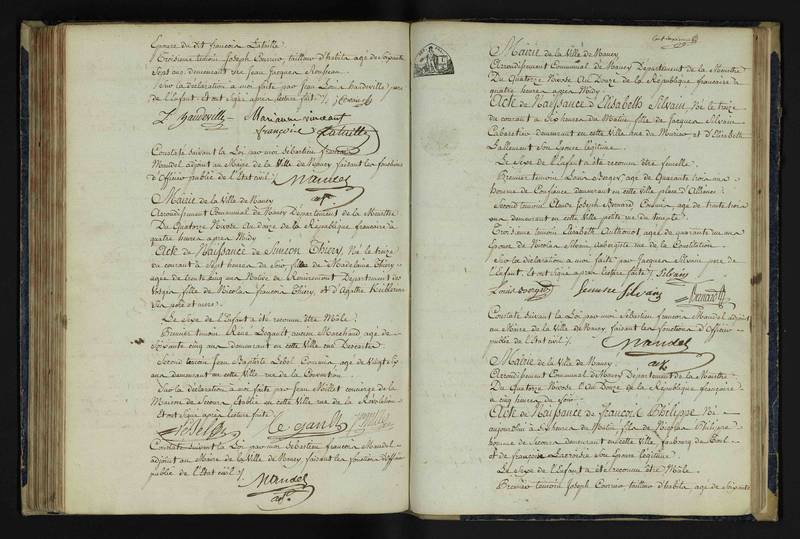 Epouse du dit françois Lataille
Troisieme temoin Joseph Courier, tailleur d'habits agé de soixante
Sept ans, demeurant rue Jean Jacques Rousseau.
Sur la déclaration à moi faite par Jean Louis Vaudeville, pere
de l'enfant. et ont signé après lecture faite
L Vaudeville Marianne vincent
françoise Lataille
Constaté suivant la Loi par moi Sébastien françois
Mandel adjoint au Maire de la Ville de Nancy faisant les fonctions
d'Officier public de l'Etat civil
Mandel
Mairie de la Ville de Nancy
Arrondissement Communal de Nancy Département de la Meurthe
Du Quatorze Nivose An Douze de la République française à
quatre heures après Midy
Acte de Naissance de Simeon Thiery, Né le treize
du courant à Sept heures du Soir, fils de Madelaine Thiery
agée de trente cinq ans Native de Removemont Département des
Vosges fille de Nicolas françois Thiery, et d'Agathe
Ses pere et mere.
Le Sexe de l'Enfant a été reconnu être Mâle.
Premier temoin René Legault ancien Marchand agé de
Soixante cinq ans demeurant en cette Ville rue Descartes
Second temoin Jean Baptiste Lebel Commis, agé de Vingt Six
ans demeurant en cette Ville rue de la Convention
Sur la déclaration à moi faite par Jean Millet concierge de la
Maison de Secours Etablie en cette Ville rue de la Révolution
Et ont signé après lecture faite
Le gault
Constaté suivant la Loi par moi Sébastien françois Mandel
adjoint au Maire de la Ville de Nancy, faisant les fonctions d'officier
public de l'Etat civil
Mandel
Mairie de la Ville de Nancy
Arrondissement Communal de Nancy Département de la Meurthe
Du Quatorze Nivose An Douze de la République française à
quatre heures après Midy
Acte de Naissance d'Elisabeth Silvain, Née le treize
du courant à Six heures du Matin fille de Jacques Silvain
Cabaretier demeurant en cette Ville rue du et d'Elisabeth
Lallement Son Epouse légitime.
Le Sexe de l'Enfant a été reconnu être femelle.
Premier temoin Louis agé de Quarante trois ans
homme de Confiance demeurant en cette Ville place d'Alliance.
Second temoin Claude Joseph Bernard Commis, agé de trente trois
ans demeurant en cette Ville petite rue du temple.
Troisieme temoin Elisabeth agée de quarante un ans
Epouse de Nicolas Aubergiste rue de la Constitution.
Sur la déclaration à moi faite par Jacques Silvain pere de
l'Enfant. Et ont signé après lecture faite Silvain
Louis Silvain Bernard
Constaté suivant la Loi par moi Sébastien françois Mandel adjoint
au Maire de la Ville de Nancy, faisant les fonctions d'Officier
public de l'Etat civil
Mandel
Mairie de la Ville de Nancy
Arrondissement Communal de Nancy Département de la Meurthe
Du Quatorze Nivose l'An Douze de la République française
à cinq heures du Soir
Acte de Naissance de françois Philippe Né
aujourdhui à Six heures du Matin, fils de Philippe
homme de demeurant en cette Ville, faubourg de Toul
et de françoise Son Epouse légitime
Le Sexe de l'Enfant a été reconnu être Mâle.
Premier temoin Joseph Courier tailleur d'habits, agé de soixante